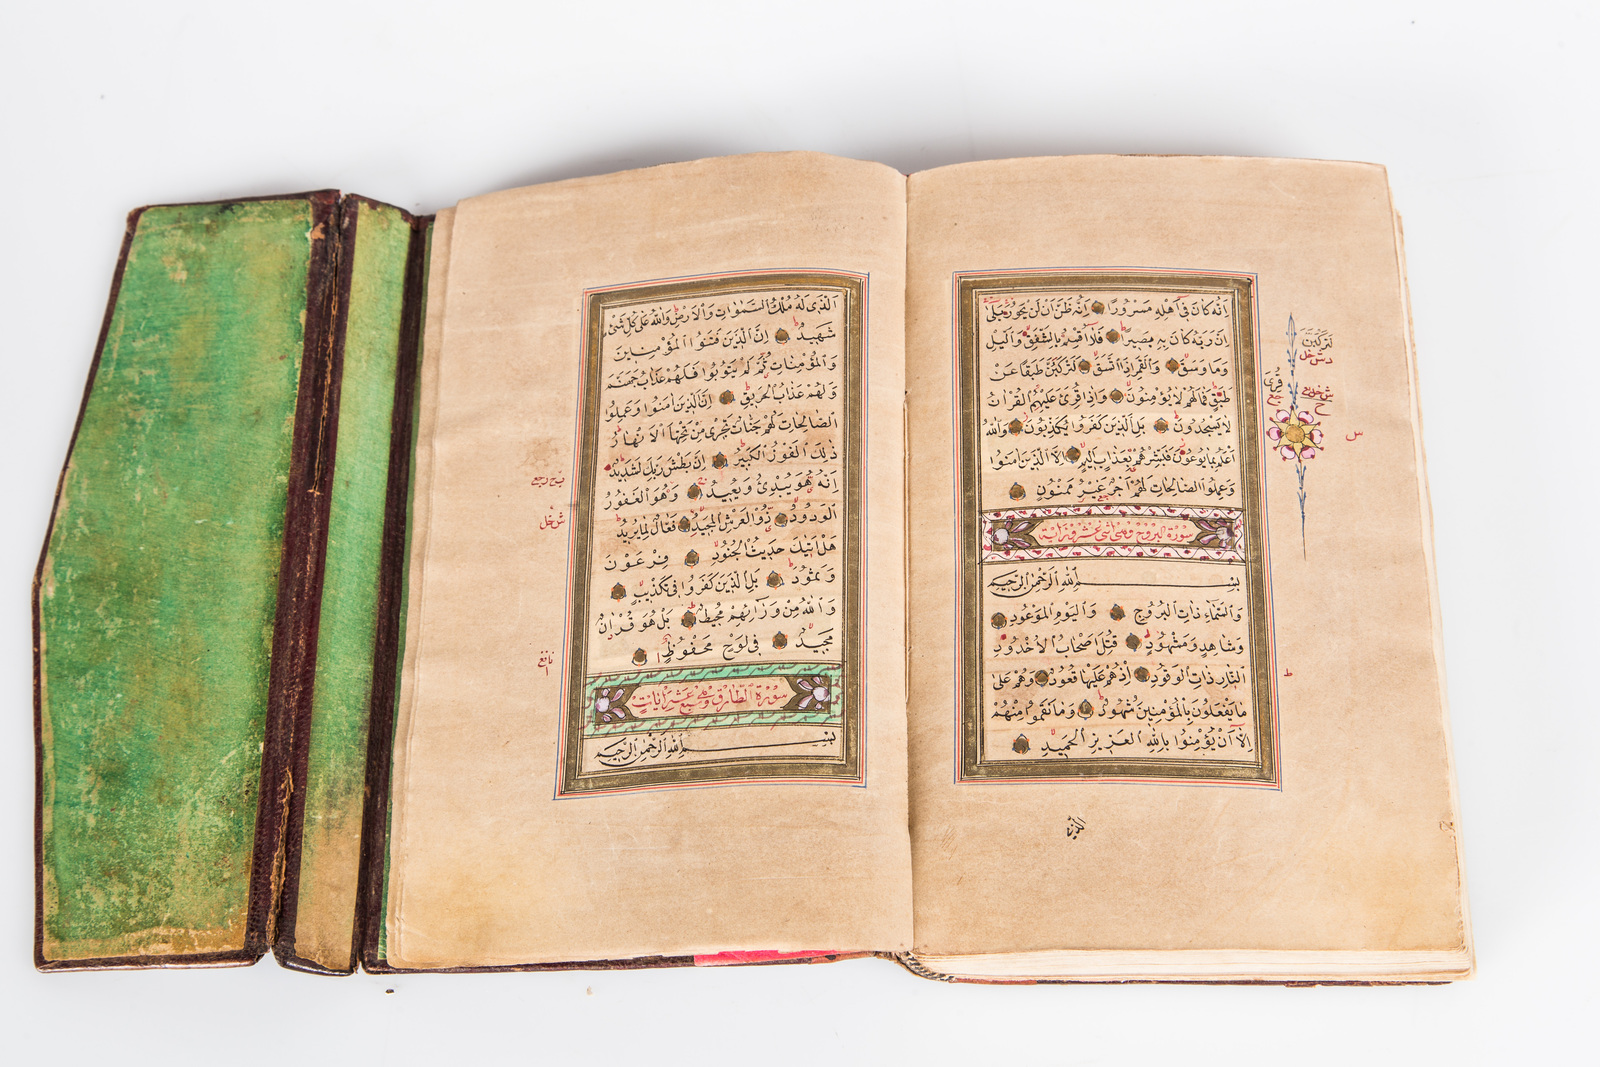 اِنَّهُ كَانَ فِي اَهْلِهِ مَسْرُورًا اِنَّهُ ظَنَّ اَنْ لَنْ يَحُورَ بَلٰى
اِنَّ رَبَّهُ كَانَ بِهِ بَصِيرًا فَلَا اُقْسِمُ بِالشَّفَقِ وَالَّيْلِ
وَمَا وَسَقَ وَالْقَمَرِ اِذَا اتَّسَقَ لَتَرْكَبُنَّ طَبَقًا عَنْ
طَبَقٍ فَمَا لَهُمْ لَا يُؤْمِنُونَ وَاِذَا قُرِئَ عَلَيْهِمُ الْقُرْاٰنُ
لَا يَسْجُدُونَ بَلِ الَّذِينَ كَفَرُوا يُكَذِّبُونَ وَاللّٰهُ
اَعْلَمُ بِمَا يُوعُونَ فَبَشِّرْهُمْ بِعَذَابٍ اَلِيمٍ اِلَّا الَّذِينَ اٰمَنُوا
وَعَمِلُوا الصَّالِحَاتِ لَهُمْ اَجْرٌ غَيْرُ مَمْنُونٍ
سورة البروج وهي اثني عشرون اية
بِسْمِ اللّٰهِ الرَّحْمٰنِ الرَّحِيمِ
وَالسَّمَاءِ ذَاتِ الْبُرُوجِ وَالْيَوْمِ الْمَوْعُودِ
وَشَاهِدٍ وَمَشْهُودٍ قُتِلَ اَصْحَابُ الْاُخْدُودِ
اَلنَّارِ ذَاتِ الْوَقُودِ اِذْ هُمْ عَلَيْهَا قُعُودٌ وَهُمْ عَلٰى
مَا يَفْعَلُونَ بِالْمُؤْمِنِينَ شُهُودٌ وَمَا نَقَمُوا مِنْهُمْ
اِلَّا اَنْ يُؤْمِنُوا بِاللّٰهِ الْعَزِيزِ الْحَمِيدِ
الَّذِي
لَتَرْكَبُنَّ
قُرِئَ
س
ط
اَلَّذِي لَهُ مُلْكُ السَّمٰوَاتِ وَالْاَرْضِ وَاللّٰهُ عَلٰى كُلِّ شَيْءٍ
شَهِيدٌ اِنَّ الَّذِينَ فَتَنُوا الْمُؤْمِنِينَ
وَالْمُؤْمِنَاتِ ثُمَّ لَمْ يَتُوبُوا فَلَهُمْ عَذَابُ جَهَنَّمَ
وَلَهُمْ عَذَابُ الْحَرِيقِ اِنَّ الَّذِينَ اٰمَنُوا وَعَمِلُوا
الصَّالِحَاتِ لَهُمْ جَنَّاتٌ تَجْرِي مِنْ تَحْتِهَا الْاَنْهَارُ
ذٰلِكَ الْفَوْزُ الْكَبِيرُ اِنَّ بَطْشَ رَبِّكَ لَشَدِيدٌ
اِنَّهُ هُوَ يُبْدِئُ وَيُعِيدُ وَهُوَ الْغَفُورُ
الْوَدُودُ ذُو الْعَرْشِ الْمَجِيدُ فَعَّالٌ لِمَا يُرِيدُ
هَلْ اَتٰيكَ حَدِيثُ الْجُنُودِ فِرْعَوْنَ
وَثَمُودَ بَلِ الَّذِينَ كَفَرُوا فِي تَكْذِيبٍ
وَاللّٰهُ مِنْ وَرَائِهِمْ مُحِيطٌ بَلْ هُوَ قُرْاٰنٌ
مَجِيدٌ فِي لَوْحٍ مَحْفُوظٍ
سورة الطارق وهي سبع عشر ايات
بِسْمِ اللّٰهِ الرَّحْمٰنِ الرَّحِيمِ
نافع